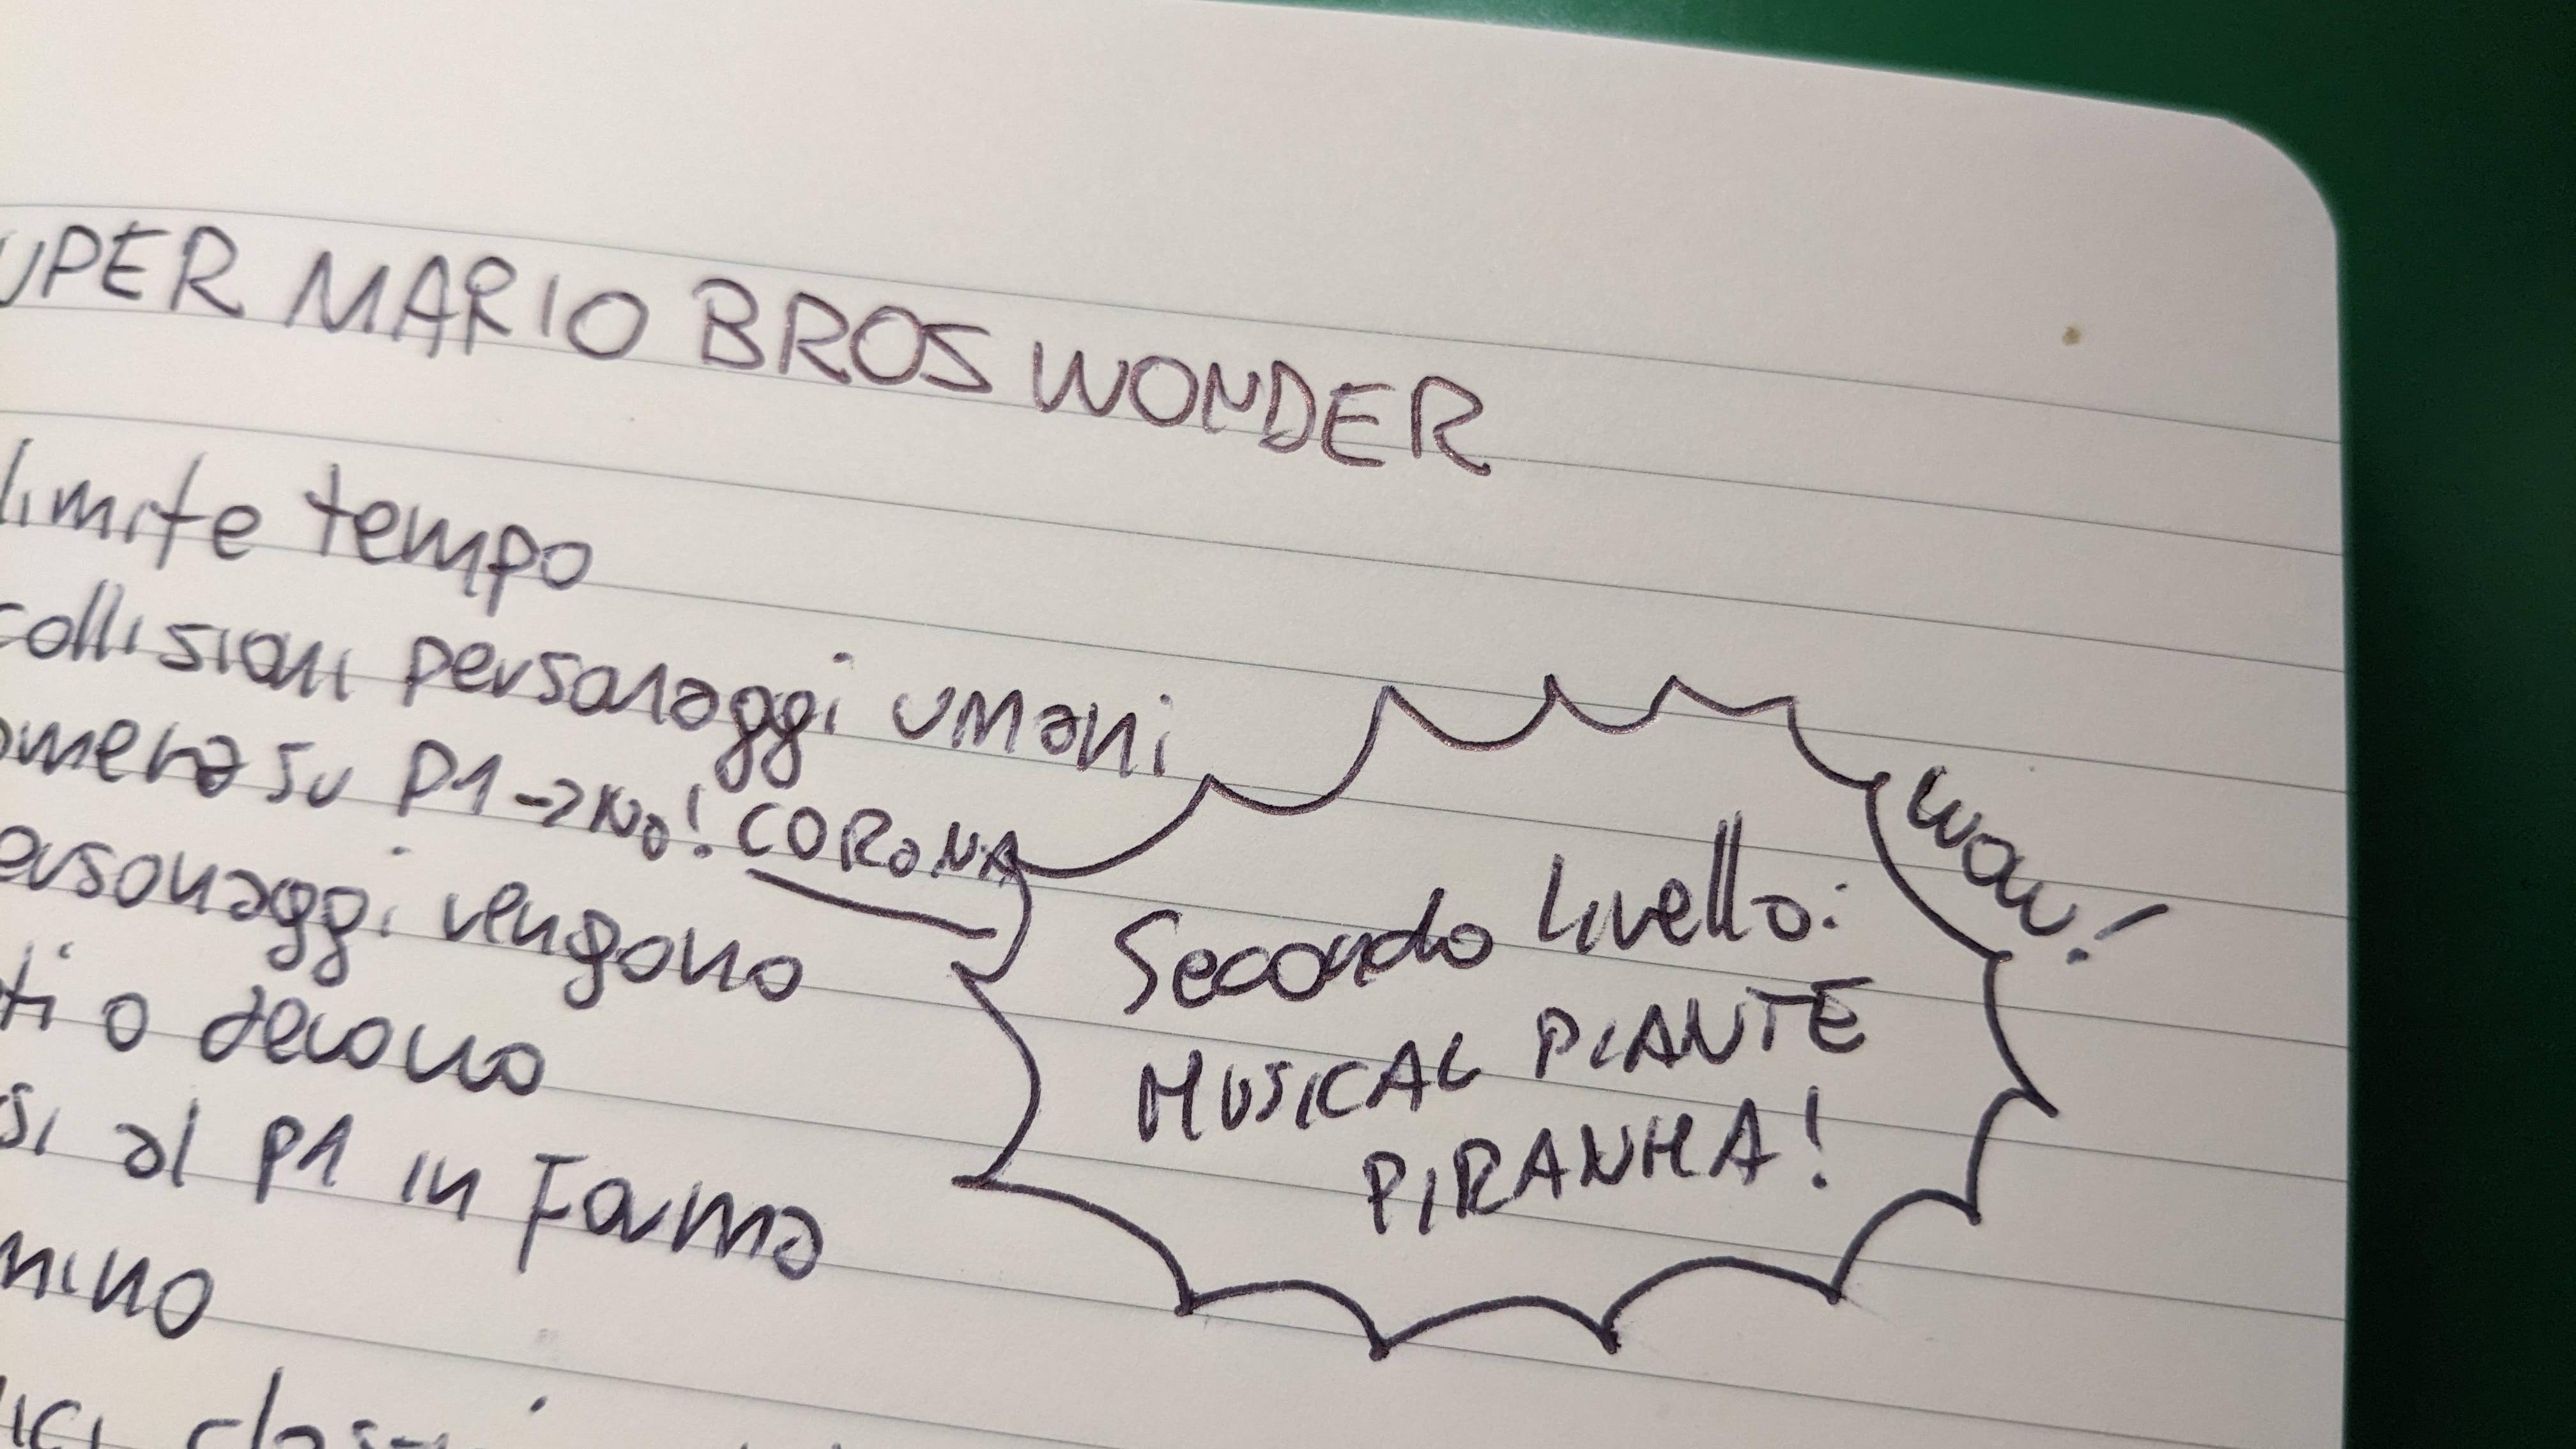 UPER MARIO BROS WONDER
limite tempo
collisioni personaggi umani
amera su P1 -> No! CORONA
ersonaggi vengono
ti o devono
si al P1 in Forma
mino
ici classi
Secondo livello:
MUSICAL PIANTE
PIRANHA!
WOW!